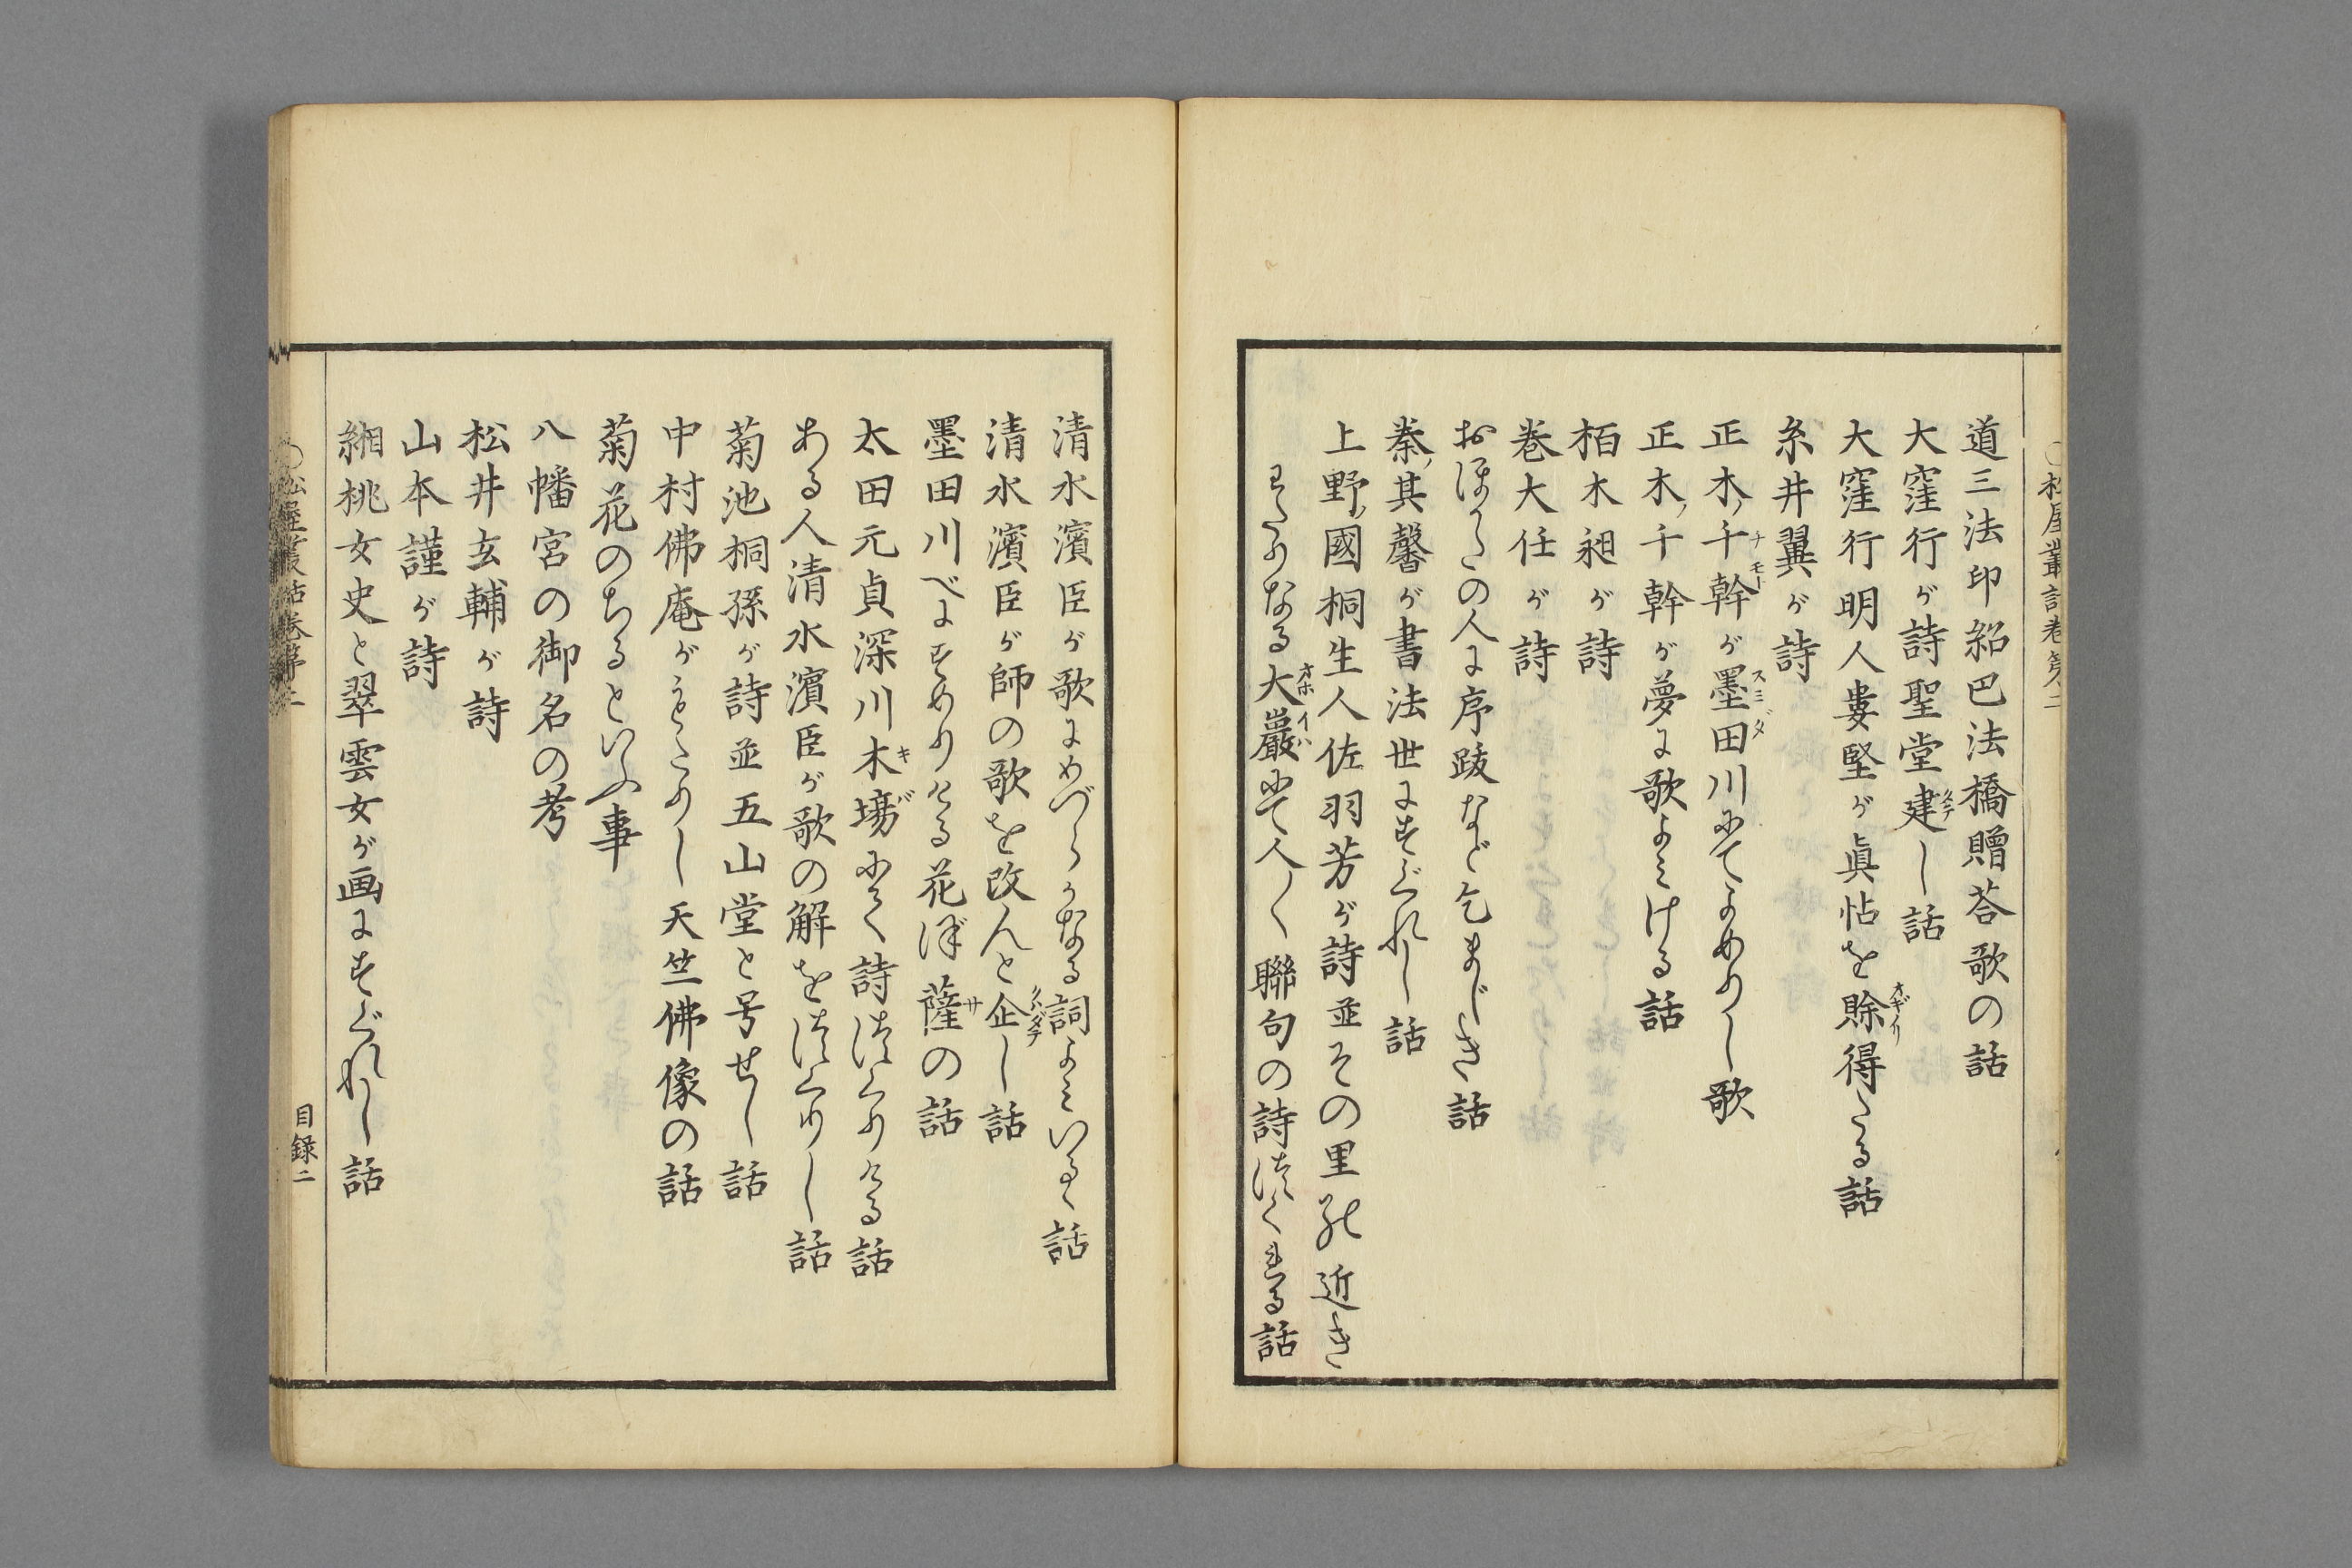 道三法印紹巴法橋贈荅歌の話
大窪行が詩聖堂建し話
大窪行明人婁堅が眞帖を賒得たる話
糸井翼が詩
正木千幹が墨田川にてよめりし歌
正木千幹が夢に歌よみける話
栢木昶が詩
巻大任が詩
おほかたの人に序跋など乞まじき話
秦其馨が書法世にすぐれし話
上野國桐生人佐羽芳が詩並その里の近き
わたりなる大巖にて人〱聯句の詩つくれる話
清水濱臣が歌にめづらかなる詞よみいるゝ話
清水濱臣が師の歌を改んと企し話
墨田川べにすめりける花ぼ薩の話
太田元貞深川木塲にて詩つくりける話
ある人清水濱臣が歌の解をつくりし話
菊池桐孫が詩並五山堂と号せし話
中村佛庵がもたりし天竺佛像の話
菊花のちるといふ事
八幡宮の御名の考
松井玄輔が詩
山本謹が詩
緗桃女史と翠雲女が画にすぐれし話
目録二